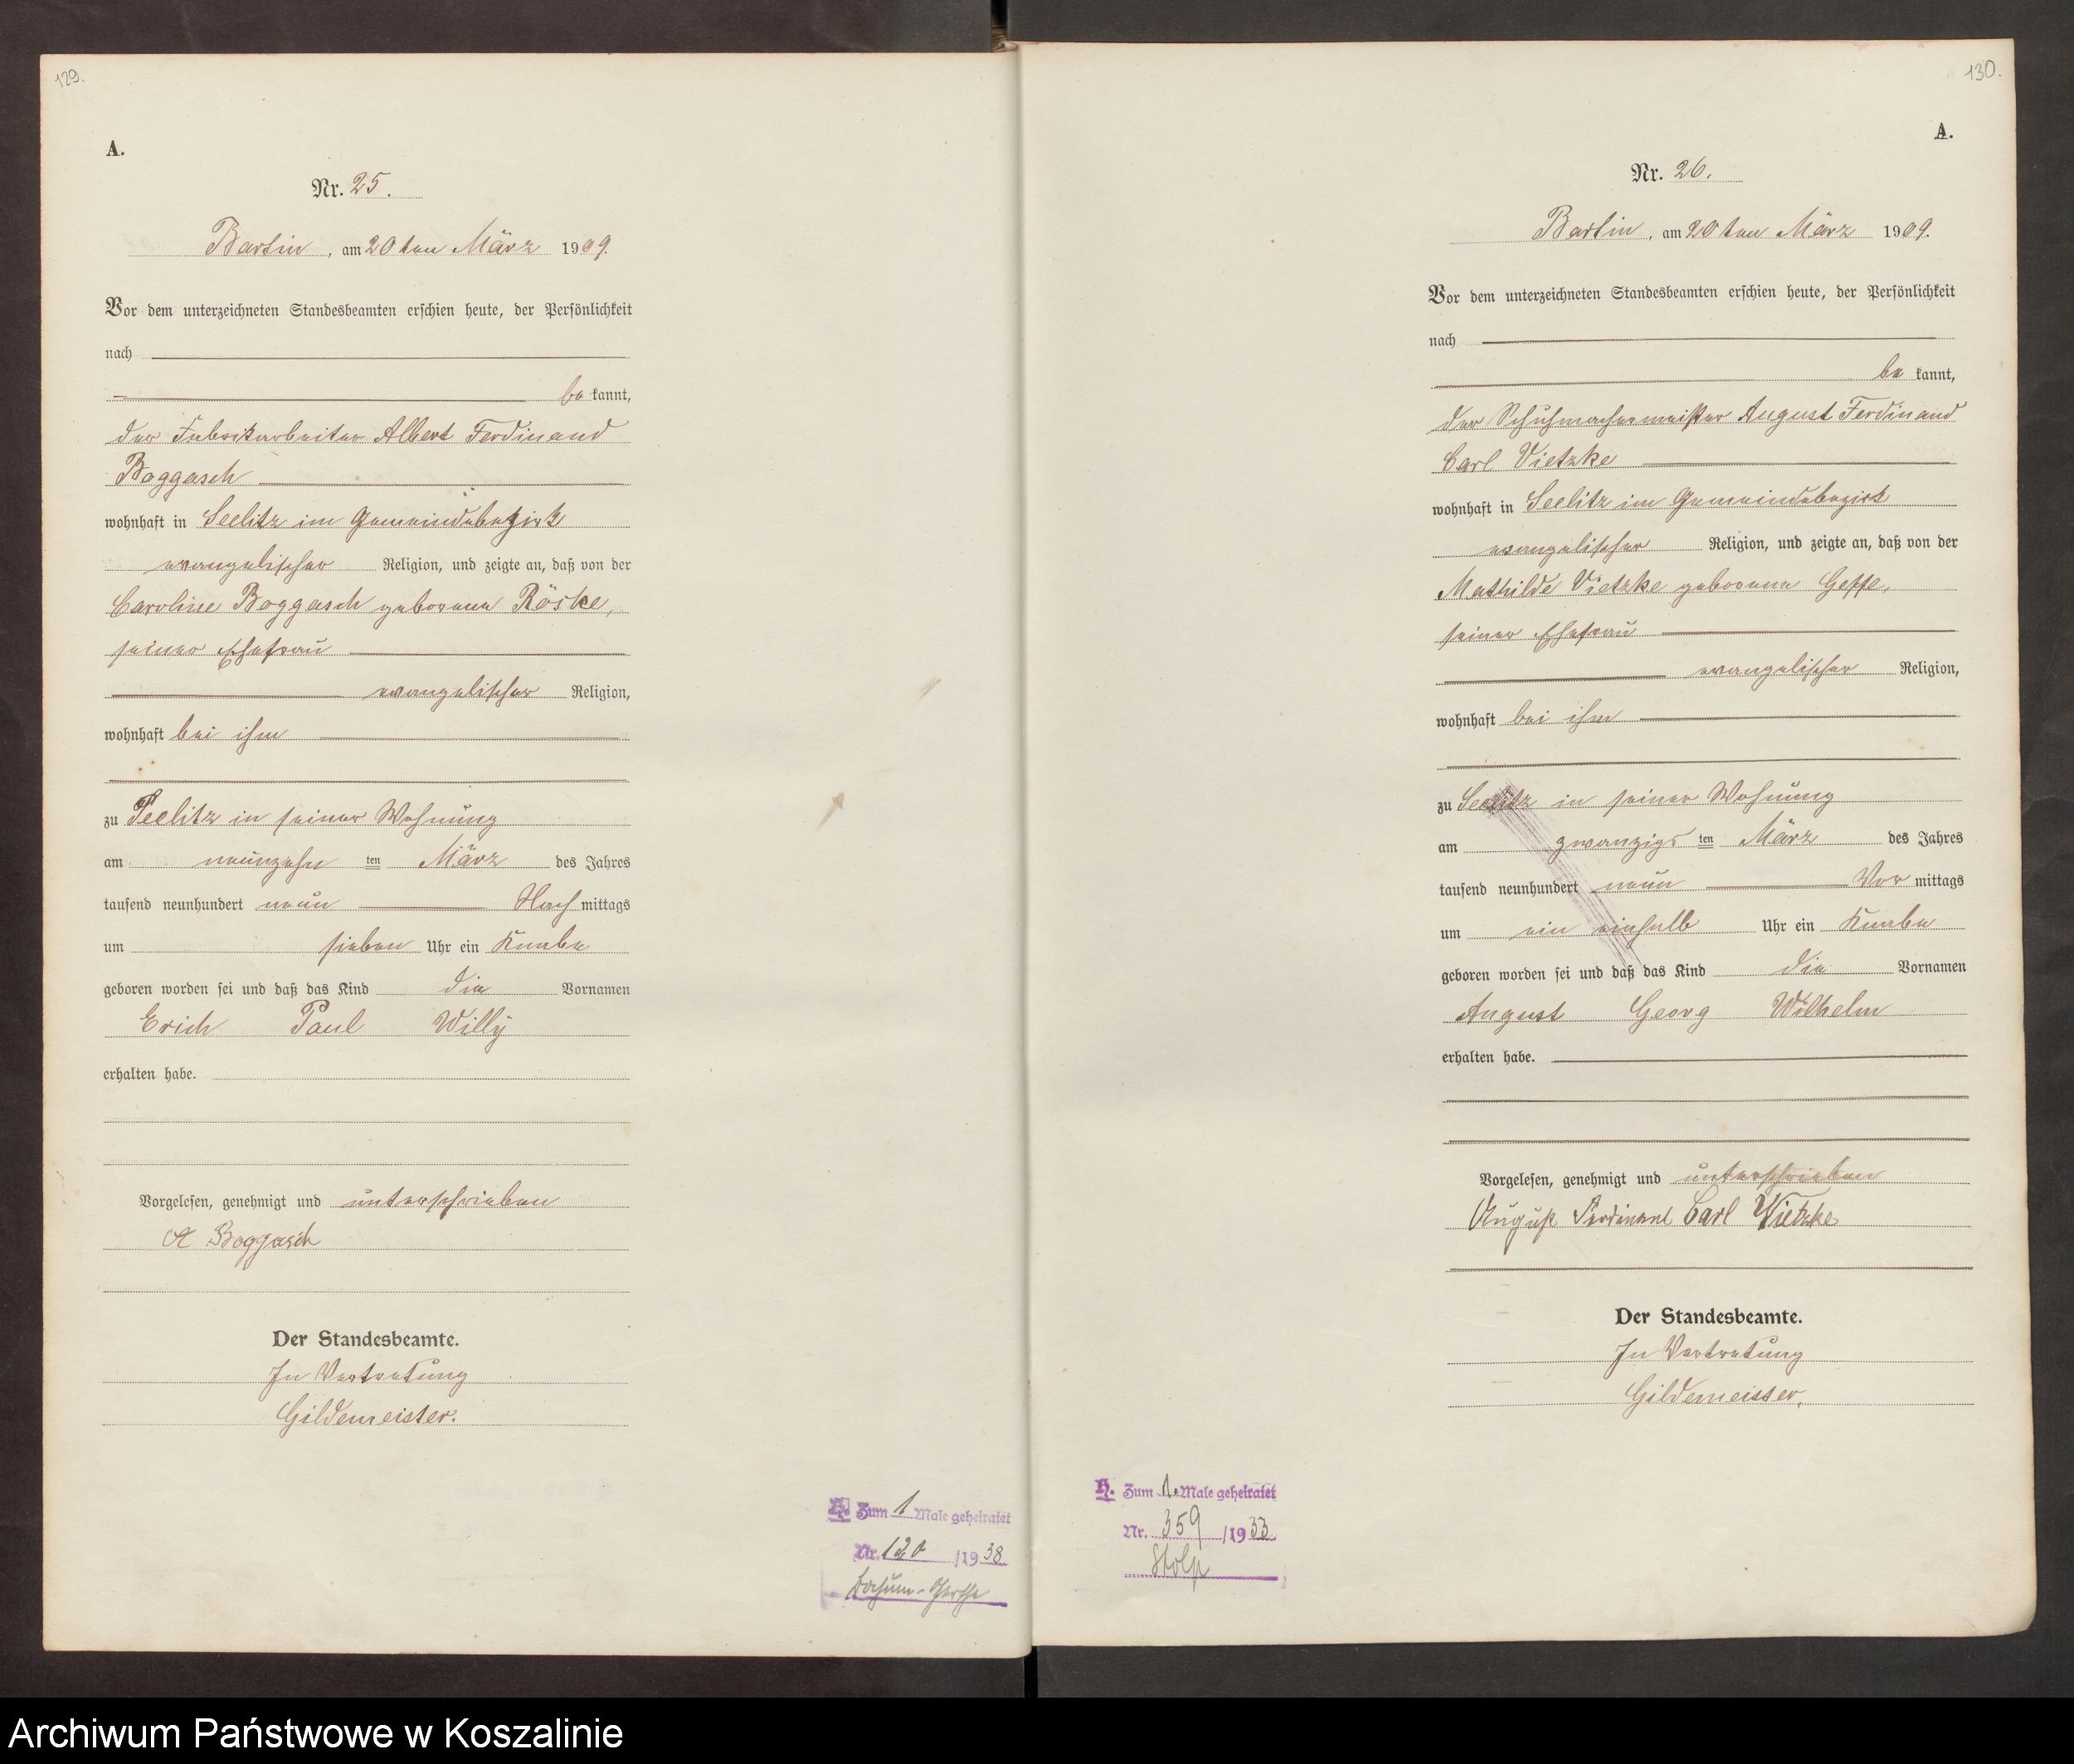 129.
A.
Nr. 25.
Bartin, am 20ten März 1909.
Vor dem unterzeichneten Standesbeamten erschien heute, der Persönlichkeit
nach
be kannt,
der Fabrikarbeiter Albert Ferdinand
Boggasch
wohnhaft in Seelitz im Gemeindebezirk
evangelischer Religion, und zeigte an, daß von der
Caroline Boggasch geborene Röske,
seiner Ehefrau
evangelischer Religion,
wohnhaft bei ihm
zu Seelitz in seiner Wohnung
am neunzehn ten März des Jahres
tausend neunhundert neun Nach mittags
um sieben Uhr ein Knabe
geboren worden sei und daß das Kind die Vornamen
Erich Paul Willy
erhalten habe.
Vorgelesen, genehmigt und unterschrieben
A Boggasch
Der Standesbeamte.
In Vertretung
Gildemeister.
H. Zum 1 Male geheiratet
Nr. 120 /1938
Bochum-
130.
A.
Nr. 26.
Bartin, am 20ten März 1909.
Vor dem unterzeichneten Standesbeamten erschien heute, der Persönlichkeit
nach
be kannt,
der Schuhmachermeister August Ferdinand
Carl Vietzke
wohnhaft in Seelitz im Gemeindebezirk
evangelischer Religion, und zeigte an, daß von der
Mathilde Vietzke geborene Geffe,
seiner Ehefrau
evangelischer Religion,
wohnhaft bei ihm
zu Seelitz in seiner Wohnung
am zwanzigs ten März des Jahres
tausend neunhundert neun Vor mittags
um ein einhalb Uhr ein Knabe
geboren worden sei und daß das Kind die Vornamen
August Georg Wilhelm
erhalten habe.
Vorgelesen, genehmigt und unterschrieben
August Ferdinand Carl Vietzke
Der Standesbeamte.
In Vertretung
Gildemeister.
H. Zum 1. Male geheiratet
Nr. 359 /1933
Stolp
Archiwum Państwowe w Koszalinie